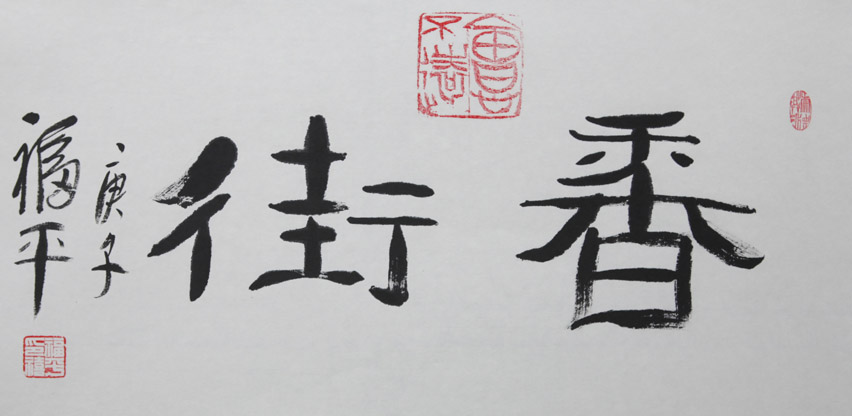 香街
庚子
福平